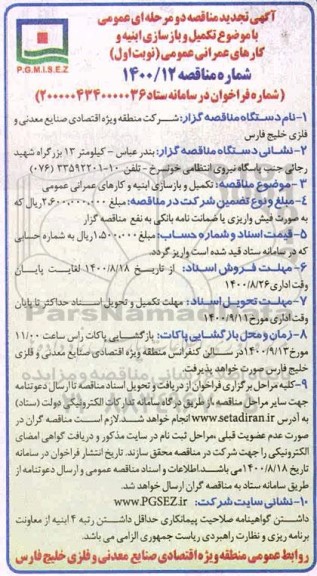 آگهی تجدید مناقصه دو مرحله ای عمومی
با موضوع تکمیل و بازسازی ابنیه و
کارهای عمرانی عمومی (نوبت اول)
P.G.M.I.S.E.Z
شماره مناقصه ۱۴۰۰/۱۲
(شماره فراخوان در سامانه ستاد ۲۰۰۰۰۰۴۳۴۰۰۰۰۳۶)
۱-نام دستگاه مناقصه گزار: شرکت منطقه ویژه اقتصادی صنایع معدنی و
فلزی خلیج فارس
۲- نشانی دستگاه مناقصه گزار: بندر عباس - کیلومتر ۱۳ بزرگراه شهید
رجائی جنب پاسگاه نیروی انتظامی خونسرخ - تلفن ۱۰-۳۳۵۹۲۲۰۱ (۰۷۶)
۳- موضوع مناقصه: تکمیل و بازسازی ابنیه و کارهای عمرانی عمومی
۴- مبلغ و نوع تضمین شرکت در مناقصه: مبلغ ۲.۶۰۰.۰۰۰.۰۰۰ ریال که
به صورت فیش واریزی یا ضمانت نامه بانکی به نفع مناقصه گزار
۵- قیمت اسناد و شماره حساب: مبلغ ۱.۵۰۰.۰۰۰ ریال به شماره حسابی
که در سامانه ستاد قید شده است واریز گردد.
۶- مهلت فروش اسناد: از تاریخ ۱۴۰۰/۸/۱۸ لغایت پایان
وقت اداری ۱۴۰۰/۸/۲۶
۷- مهلت تحویل اسناد: مهلت تکمیل و تحویل اسناد حداکثر تا پایان
وقت اداری مورخ ۱۴۰۰/۹/۱۱
۸- زمان و محل بازگشایی پاکات: بازگشایی پاکات راس ساعت ۱۱/۰۰
مورخ ۱۴۰۰/۹/۱۳ در سالن کنفرانس منطقه ویژه اقتصادی صنایع معدنی و فلزی
خلیج فارس صورت خواهد پذیرفت.
۹- کلیه مراحل برگزاری فراخوان از دریافت و تحویل اسناد مناقصه تا ارسال دعوتنامه
جهت سایر مراحل مناقصه، از طریق درگاه سامانه تدارکات الکترونیکی دولت (ستاد)
به آدرس www.setadiran.ir انجام خواهد شد. لازم است مناقصه گران در
صورت عدم عضویت قبلی مراحل ثبت نام در سایت مذکور و دریافت گواهی امضای
الکترونیکی را جهت شرکت در مناقصه محقق سازند. تاریخ انتشار فراخوان در سامانه
تاریخ ۱۴۰۰/۸/۱۸ می باشد. اطلاعات و اسناد مناقصه عمومی و ارسال دعوتنامه از
طریق سامانه ستاد به مناقصه گران ارسال خواهد شد.
۱۰- نشانی سایت شرکت: www.PGSEZ.ir
داشتن گواهینامه صلاحیت پیمانکاری حداقل داشتن رتبه ۴ ابنیه از معاونت
برنامه ریزی و نظارت راهبردی ریاست جمهوری الزامی می باشد.
روابط عمومی منطقه ویژه اقتصادی صنایع معدنی و فلزی خلیج فارس